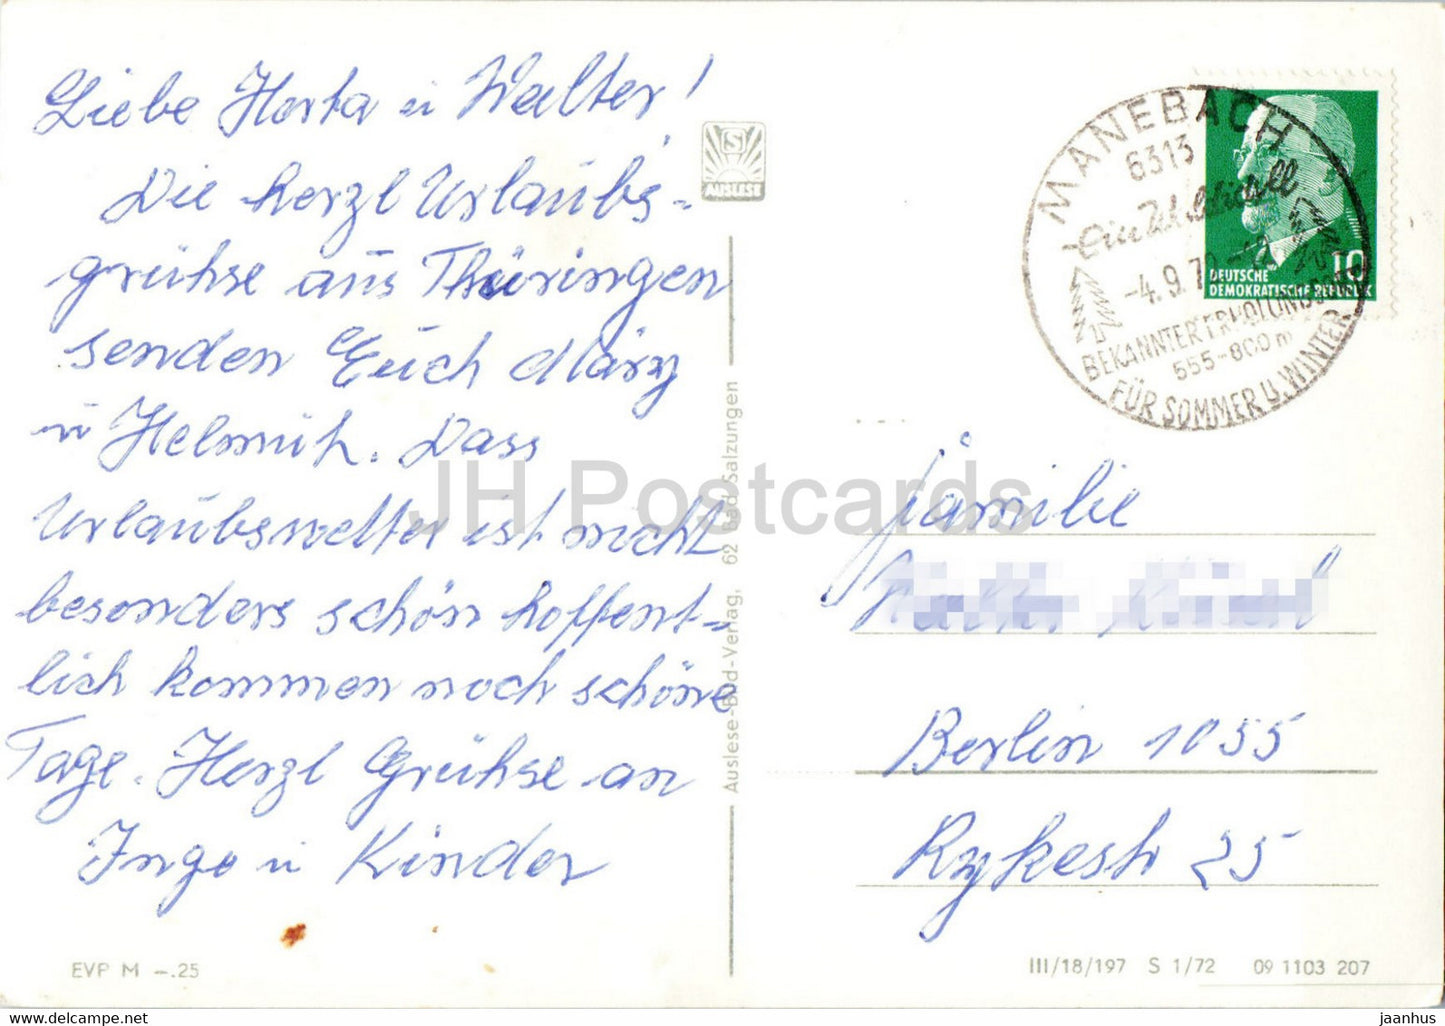 Liebe Herta u Walter!
Die herzl Urlaubs-
grühse aus Thüringen
senden Euch Mary
u Helmuth. Dass
Urlaubswetter ist nicht
besonders schön hoffent-
lich kommen noch schöne
Tage. Herzl Grühse an
Ingo u Kinder
EVP M -.25
S
AUSLESE
Auslese-Bild-Verlag, 62 Bad Salzungen
MANEBACH
6313
Ein Idyll
-4.9.7
BEKANNTER ERHOLUNGSORT
555-800m
FÜR SOMMER U. WINTER
10
DEUTSCHE
DEMOKRATISCHE REPUBLIK
Familie
Berlin 1055
Rykestr 25
III/18/197 S 1/72 09 1103 207
JH Postcards
hippostcard.com
jaanhus